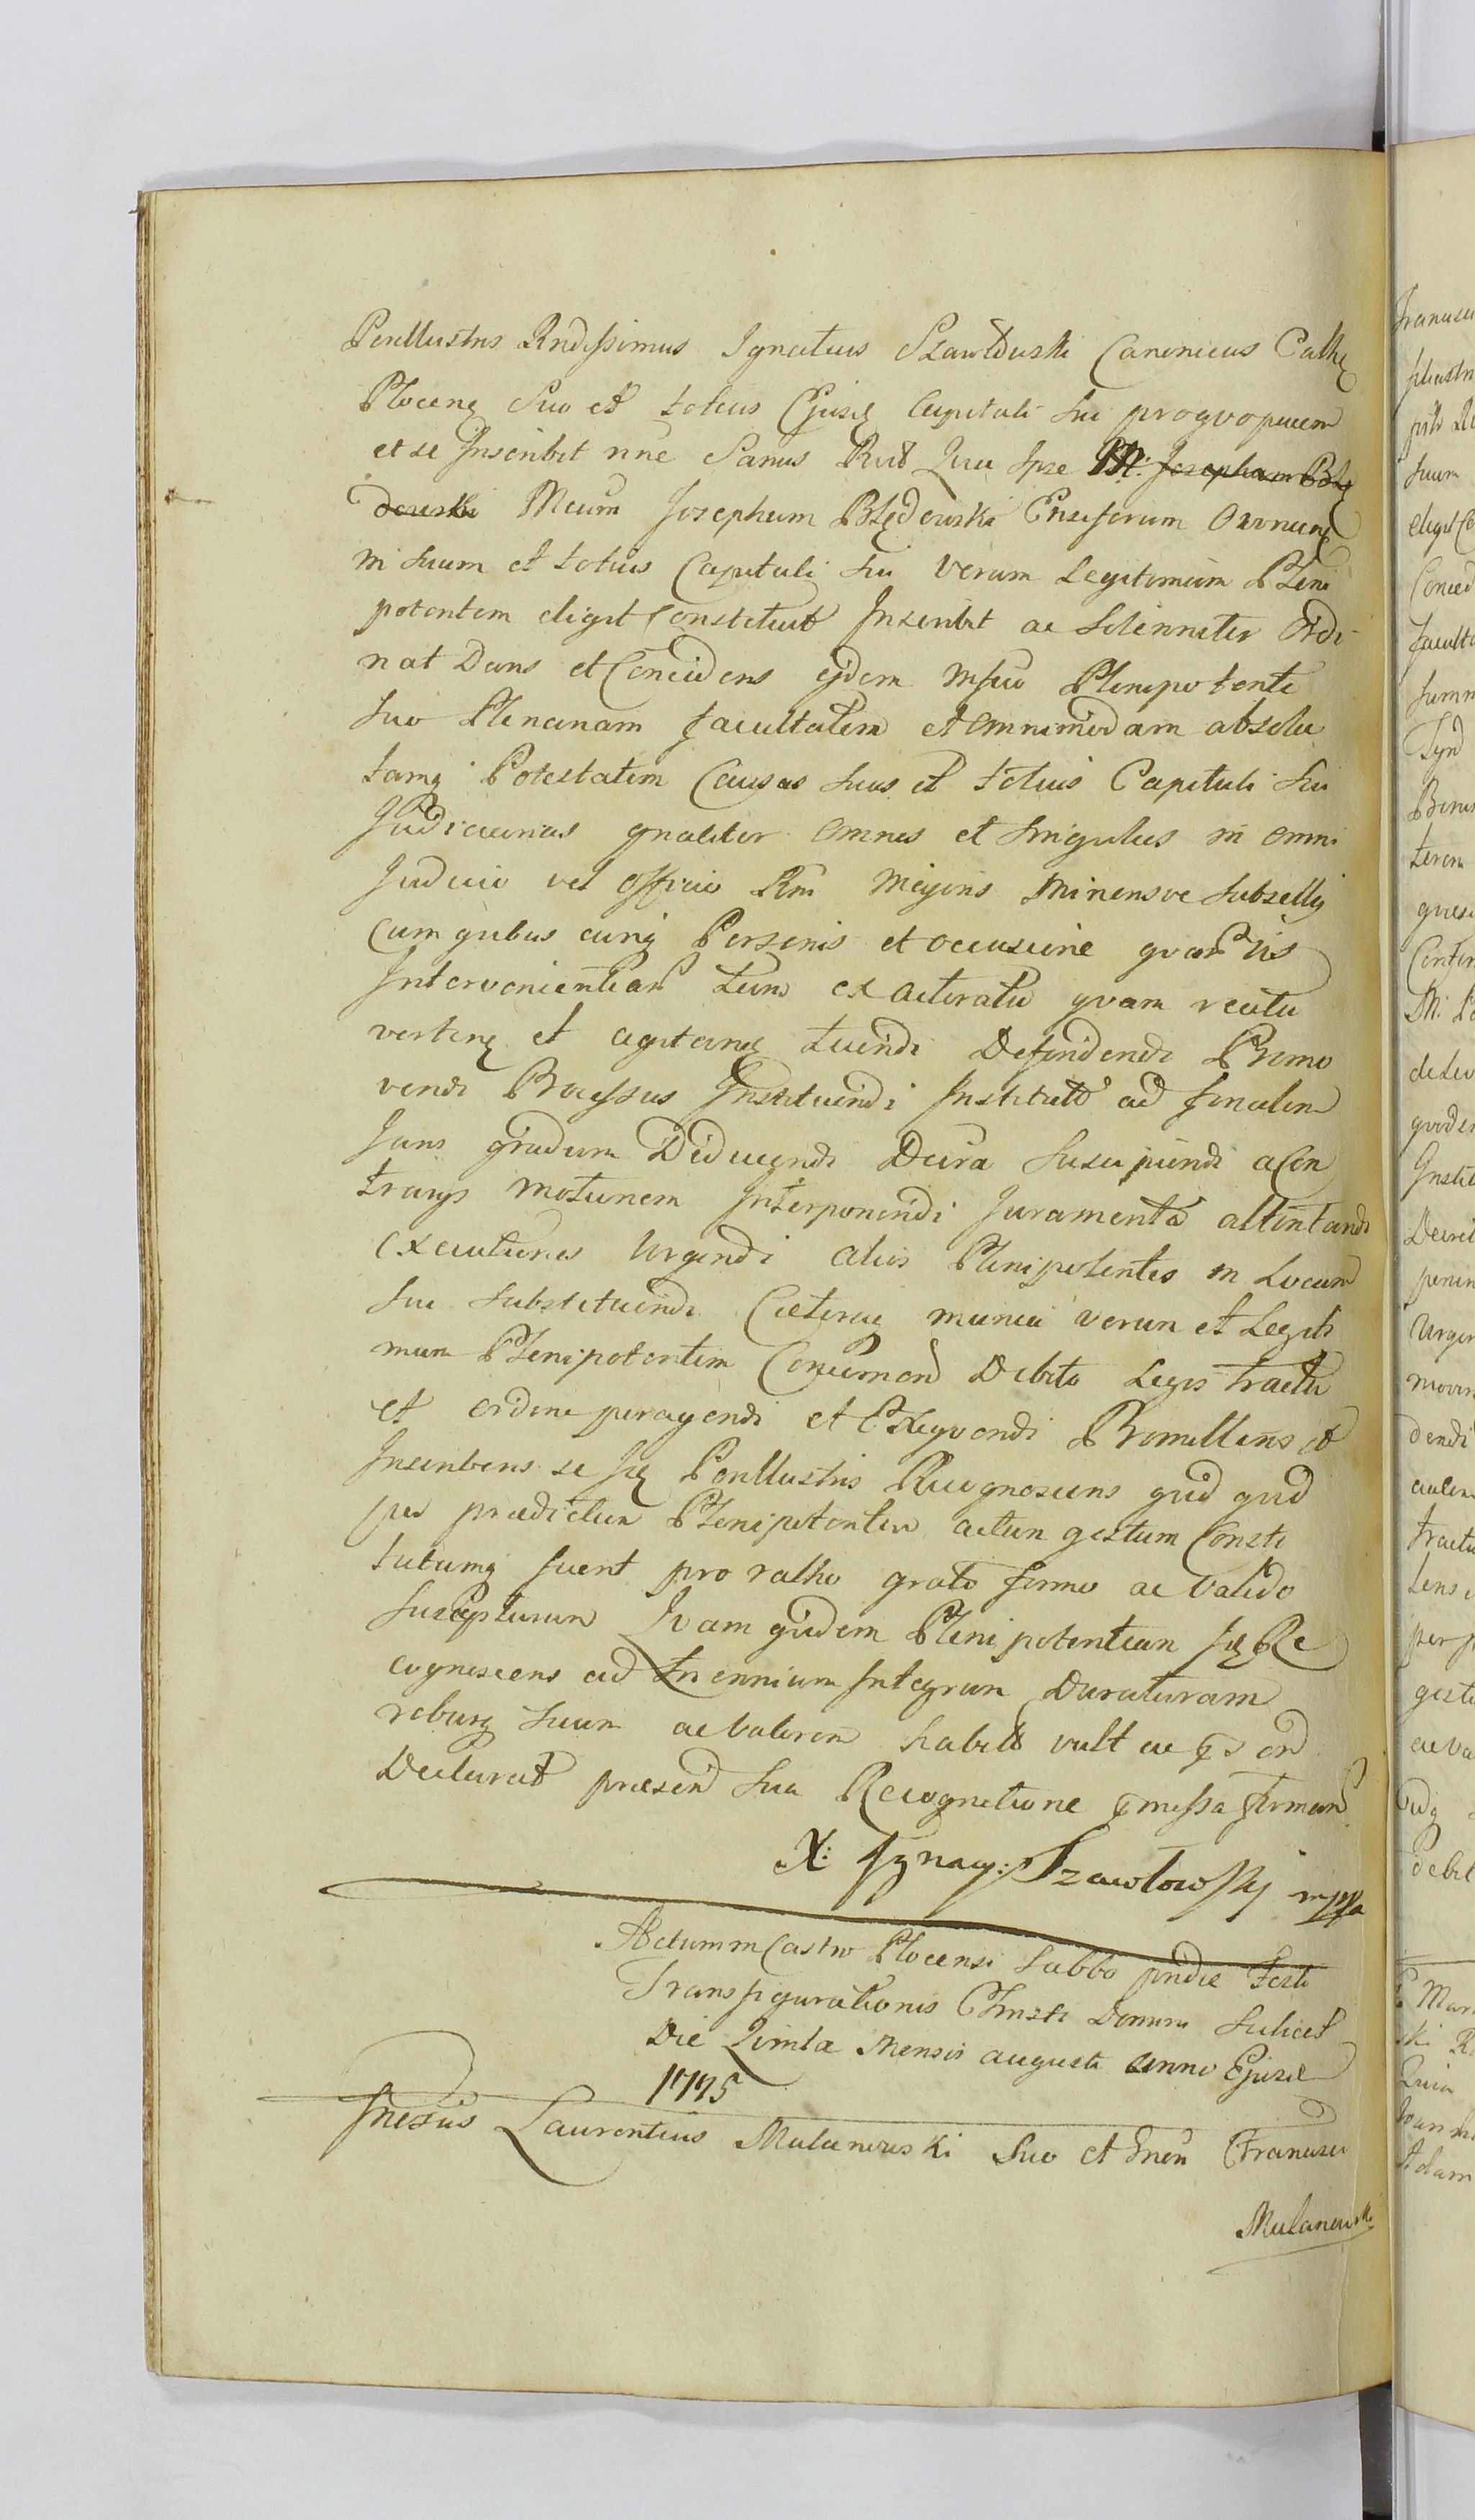 Perillustris Rndissimus Ignatius Szawłowski Canonicus Cathe
Plocene Suo et totius Ejusd Capituli sui pro quo paem
et se Inscribit nne Sanus Rndt Quia Ipse M: Josephum Błę
dowski Meum Josephum Błędowski Ensiferum Owrucen
in suum et totius Capituli sui verum Legitimum Pleni
potentem eligit Constituit Inscribit ac Solenniter Ordi
nat Dans et Concedens ejdem Plenipotenti
suo Plenariam facultatem et omnimodam absolu
tamq Potestatem Causas suas et totius Capituli sui
Judiciarias gnaliter omnes et singulas in omni
Judicio vel Officio Rni Majoris Minorisve subsellij
cum quibus cunq Personis et occasione quarvis
Intervenientiar tam ex actoratu quam reatu
verten et agitan tuendi Defendendi Promo
vendi Processus Instituendi Institut ad finalem
Juris gradum Deducendi Decra suscipiendi a Con
trarijs motionem Interponendi Juramenta attentandi
Executiones Urgendi alios Plenipotentes in Locum
sui substituendi Caeteraq munia verum et Legiti
mum Plenipotentem Concernen Debito Legis tractu
et ordine peragendi et Exequendi Promittens et
Inscribens se Perillustris Recognoscens quid quid
per praedictum Plenipotentem actum gestum Consti
tutumq fuerit pro ratho grato firmo ac valido
suscepturum Quam quidem Plenipotentiam Re
cognoscens ad triennium Integrum Duraturam
roburq suum ac valorem habet vult ac
Declarat praesen sua Recognitione mediante
X: Ignacy: Szawłowsky mppa
Actum in Castro Plocensi Sabbo pridie Festi
Transfigurationis Christi Domini Scilicet
Die Quinta Mensis augusti anno Ejusd
1775
Gnesus Laurentius Mulanowski Suo et Gnen Francisci
Mulanowski